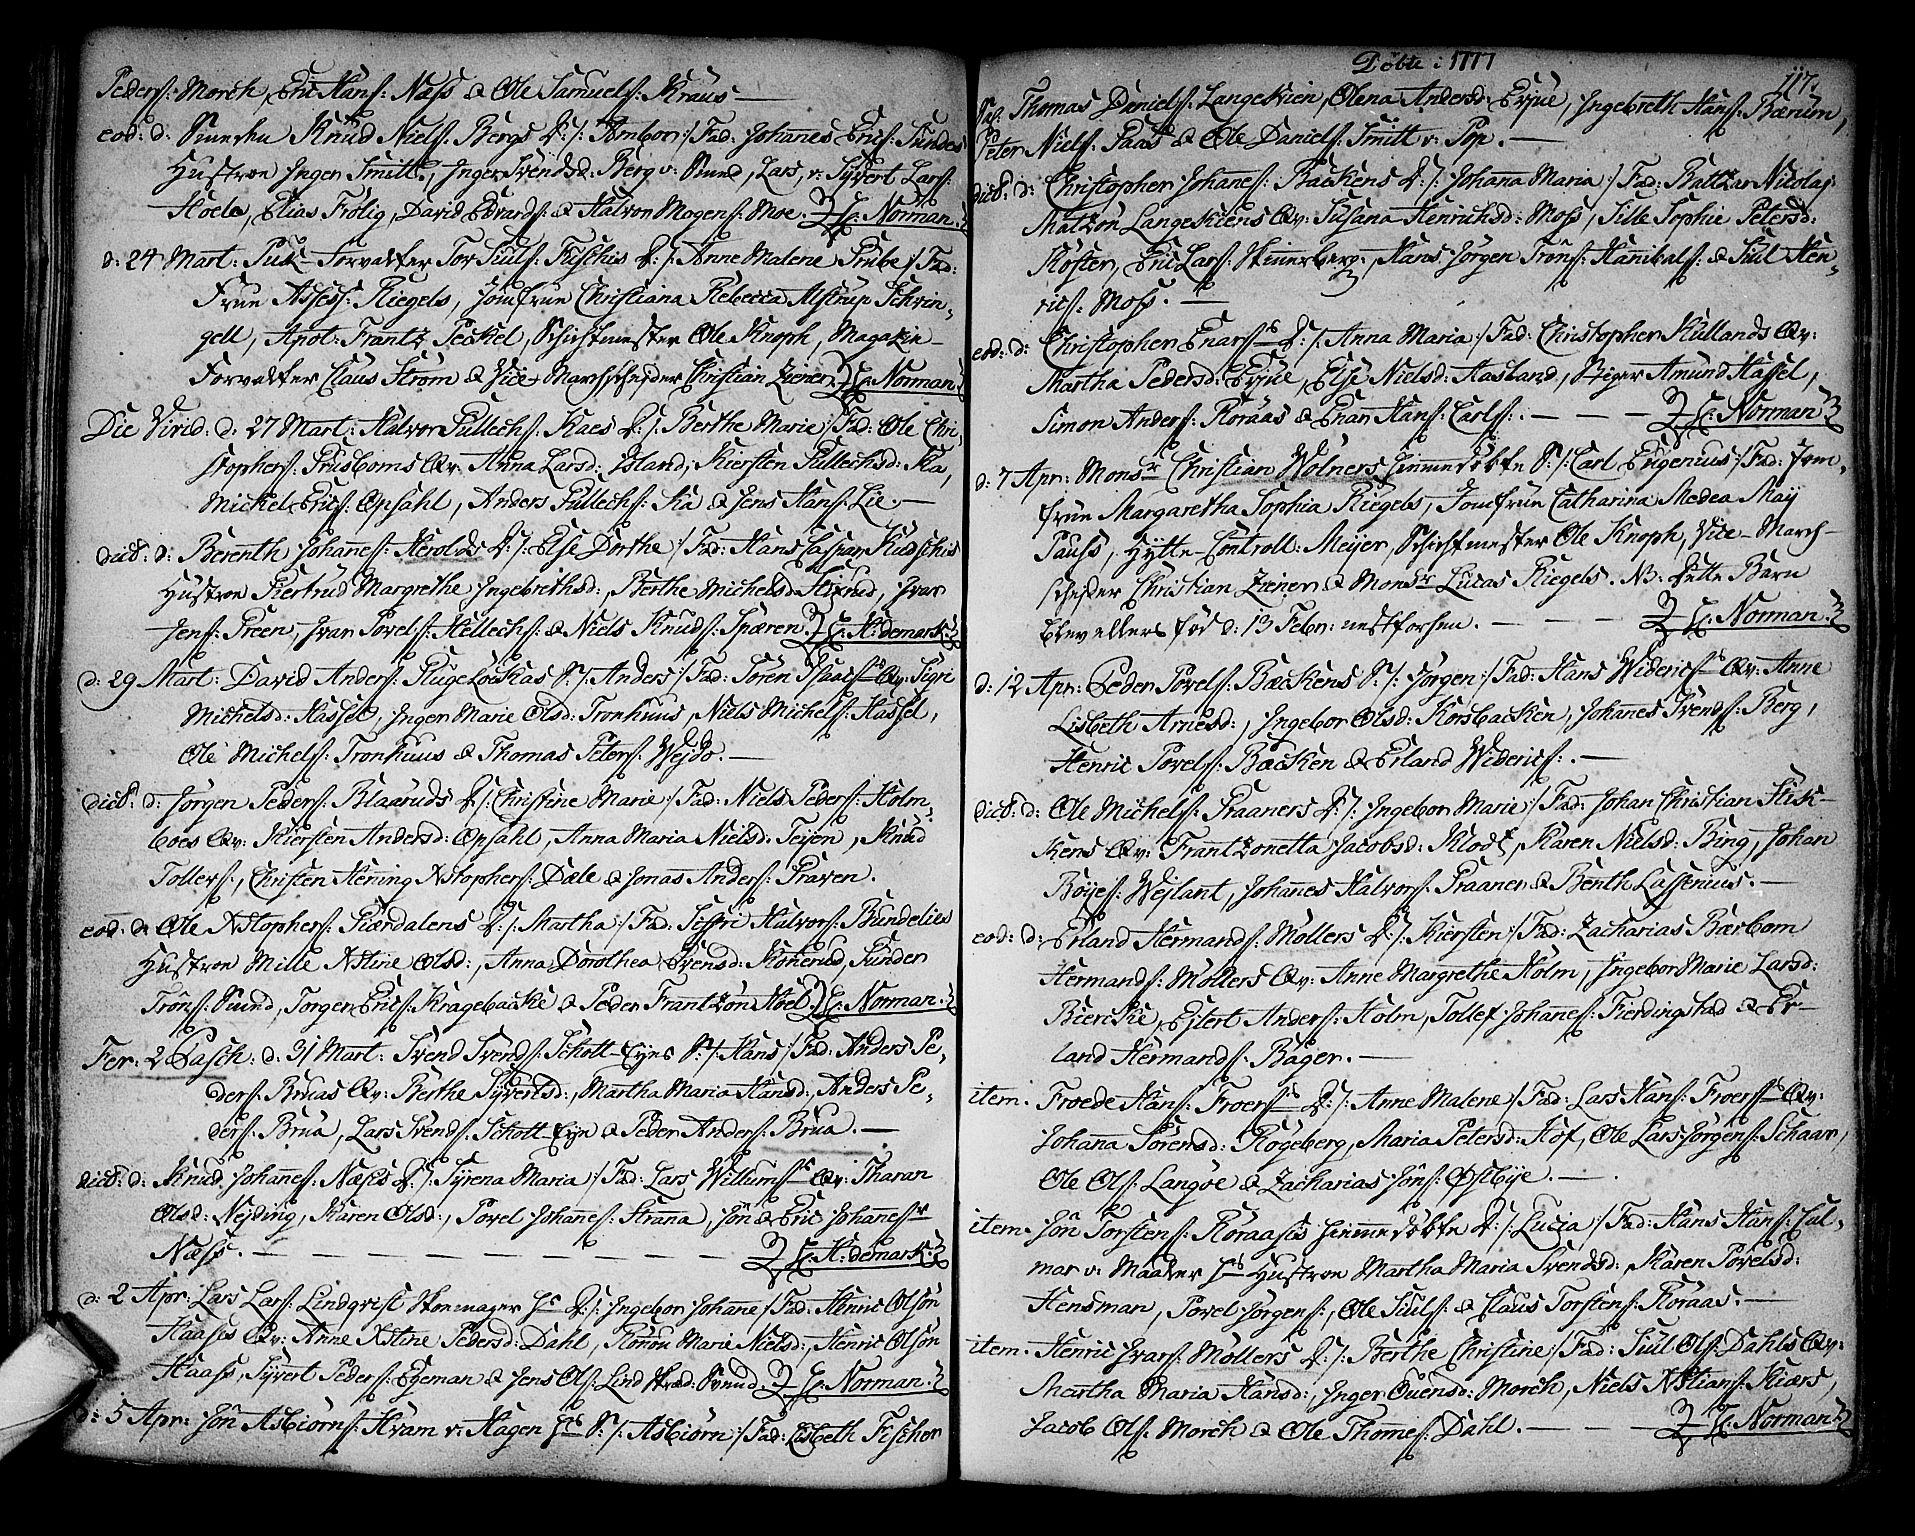 Peders: Morch, Eric Hans: Næss & Ole Samuels: Kraus —
eod: d: Knud Niels: Bergs D:/: Ambor :/ Fad: Johannes Erics: Sundes
Hustrue Inger Smitt, Inger Svendsd: Berg v: Sund, Lars, v: Syvert Lars:
Hoele, Elias Frölig, David Edvards: & Halvor Mogens: Moe. C: Norman.
d: 24 Mart: Forvalter Tor Juls: Fischis D:/: Anne Malene Grube :/ Fad:
Frue Assess: Riegels, Jomfrue Christiana Rebecca Alstrup Schvin-
gell, Apot: Frantz Peckel, Schichtmester Ole Knoph, Magazin-
Forvalter Claus Strøm & Vice Marchscheider Christian Ziener. C: Norman
Die Virid: d: 27 Mart: Halvor Gullechs: Kaes D:/: Berthe Marie :/ Fad: Ole Chri-
stophers: Grusboms Qv: Anna Larsd: Island, Kiersten Gullechsd: Ka,
Michel Erics: Opsahl, Anders Gullechs: Ka & Jens Hans: Lie. —
dict: d: Berenth Johannes: Herolds D:/: Else Dorthe :/ Fad: Hans Caspar Kudschis
Hustrue Giertrud Margrethe Ingebrethsd: Berthe Michelsd: Fixrud, Ivar
Jens: Green, Ivar Povels: Hellechs: & Niels Knuds: Spæren. C: Hedemark.
d: 29 Mart: David Anders: Rugeløckas S:/: Anders :/ Fad: Søren Isaacs: Qv: Sigri
Michelsd: Hassel, Inger Marie Olsd: Tronhuus, Niels Michels: Hassel,
Ole Michels: Tronhuus & Thomas Peters: Wejdo. —
dict: d: Jørgen Peders: Blaaruds D:/: Christine Marie :/ Fad: Niels Peders: Holm-
boes Qv: Kiersten Andersd: Opsahl, Anna Maria Nielsd: Teijen, Knud
Tollefs:, Christen Hening Xstophers: Dæle & Jonas Anders: Graven.
eod: d: Ole Xstophers: Gierdalens D:/: Martha :/ Fad: Seffri Halvors: Bundelies
Hustrue Mille Xstine Olsd:, Anna Dorothea Svensd: Konerud, Gunder
Trôns: Sund, Torger Erics: Kragebacke & Peder Frantzôn Hoel. C: Norman.
Fer: 2 Pasch: d: 31 Mart: Svend Svends: Schott-Eyns S:/: Hans :/ Fad: Anders Pe-
ders: Bruas Qv: Berthe Syvertsd:, Martha Maria Hansd:, Anders Pe-
ders: Brua, Lars Svends: Schott-Eyn & Peder Anders: Brua. —
dict: d: Knud Johannes: Næsses D:/: Syrena Maria :/ Fad: Lars Willums: Qv: Tharan
Olsd: Nejding, Karen Olsd:, Povel Johannes: Stranna, Jôn & Eric Johannes:
Næss. — — — — — — — C: Hedemark.
d: 2 Apr: Lars Lars: Lindqvist Skomager Hs D:/: Ingebor Johane :/ Fad: Henric Olsôn
Haases Qv: Anne Xstine Pedersd: Dahl, Rônou Marie Nielsd:, Henric Olsôn
Haass, Syvert Peders: Egeman & Jens Ols: Lind Sund. C: Norman.
d: 5 Apr: Jôn Asbiörns: Kvam v: Hagen Hs S:/: Asbiörn :/ Fad: Lisbeth Fischer
Döbte i 1777
117.
Sal. Thomas Daniels: Langekien, Olena Andersd: Evjue, Ingebreth Hans: Bærum,
Peter Niels: Faas & Ole Daniels: Smitt v: Pop. —
dict: d: Christopher Johanes: Backens D:/: Johana Maria :/ Fad: Baltzar Nicolaj
Matzôn Langekiens Qv: Susana Henrichsd: Moss, Sille Sophie Petersd:
Köster, Eric Lars: Skinnerberg, Hans Jörgen Trôns: Hanibals: & Juul Hen-
rics: Moss. —
eod: d: Christopher Enars: D:/: Anna Maria :/ Fad: Christopher Kullands Qv:
Martha Pedersd: Evjue, Else Nielsd: Aasland, Stiger Amund Hassel,
Simon Anders: Roraas & Enar Hans: Carls:. — — — C: Norman
d: 7 Apr: Monsr Christian Wolners Hiemmedöbte S:/: Carl Eugenius :/ Fad: Jom-
frue Margaretha Sophia Riegels, Jomfrue Catharina Medea Maij
Pauss, Hytte-Controll: Meyer, Schichtmester Ole Knoph, Vice-March-
scheider Christian Ziener & Monsr Lucas Riegels. NB: Dette Barn
blev ellers föd d: 13 Febr: nestforhen. — — — C: Norman.
d: 12 Apr: Peder Povels: Bæckens S:/: Jörgen :/ Fad: Hans Widerics: Qv: Anne
Lisbeth Arnesd:, Ingebor Olsd: Korsbacken, Johanes Svends: Berg,
Henric Povels: Bæcken & Erland Widerics:. —
dict: d: Ole Michels: Praaners D:/: Ingebor Marie :/ Fad: Johan Christian Huk-
kens Qv: Frantzonetta Jacobsd: Klodt, Karen Nielsd: Bing, Johan
Böyes: Wejlant, Johanes Halvors: Praaner & Benth Lassenius. —
eod: d: Erland Hermands: Möllers D:/: Kiersten :/ Fad: Zacharias Bærbom
Hermands: Möllers Qv: Anne Margrethe Holm, Ingebor Marie Larsd:
Biercke, Ejlert Anders: Holm, Tollef Johanes: Fierdingstad & Er-
land Hermands: Bager. —
item. Froede Hans: Froers: D:/: Anne Malene :/ Fad: Lars Hans: Froers: Qv:
Johana Sörensd: Rogeberg, Maria Petersd: Hof, Ole Lars Jörgens: Schaar,
Ole Ols: Langöe & Zacharias Jôns: Östbije. —
item. Jôn Torstens: Röraases Hiemmedöbte D:/: Lucia :/ Fad: Hans Hans: Cal-
mar v: Maaker Hs Hustrue Martha Maria Svendsd:, Karen Povelsd:
Hensman, Povel Jörgens:, Ole Juuls: & Claus Torstens: Röraas. —
item. Henric Ivars: Möllers D:/: Berthe Christine :/ Fad: Juul Ols: Dahls Qv:
Mertha Maria Hansd:, Inger Ovensd: Morch, Niels Xstians: Kiærs,
Jacob Ols: Morch & Ole Thomes: Dahl. — — — C: Norman